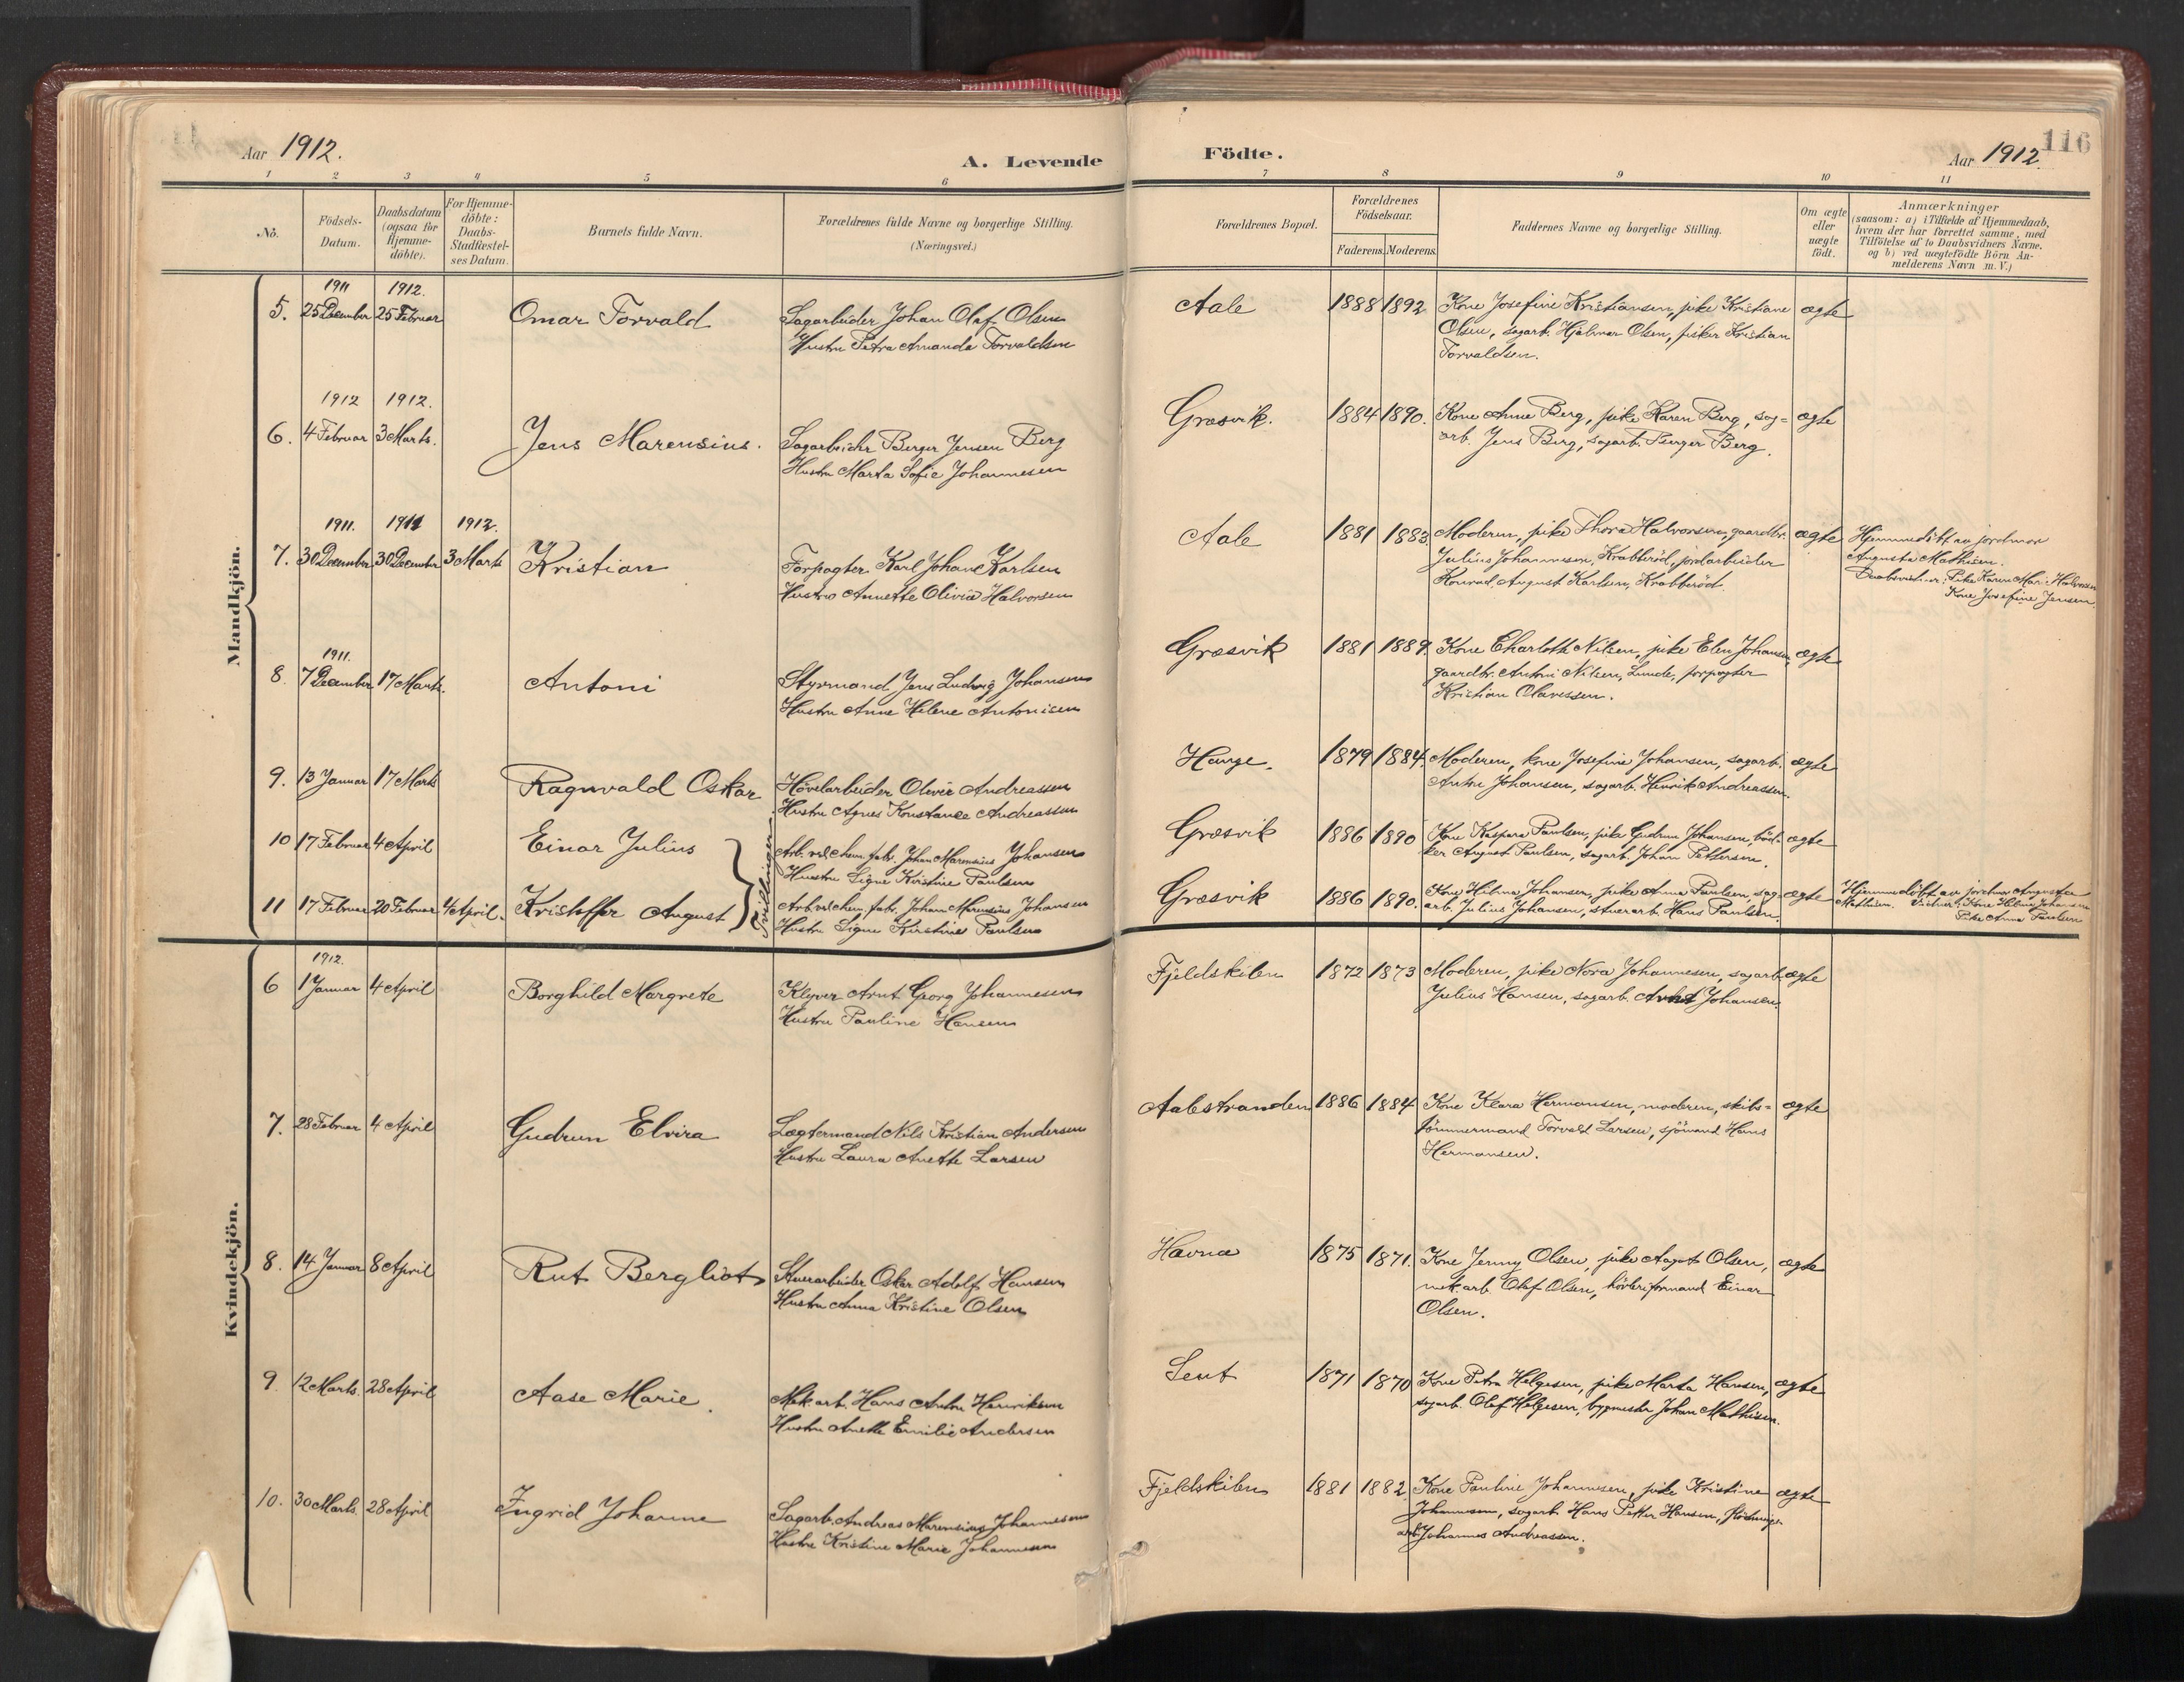 Aar 1912.
A. Levende
Födte.
116
Aar 1912.
1 2 3 4 5 6 7 8 9 10 11
No.
Födsels-
Datum.
Daabsdatum
(ogsaa for
Hjemme-
döbte).
For Hjemme-
döbte:
Daabs-
Stadfæstel-
ses Datum.
Barnets fulde Navn.
Forældrenes fulde Navne og borgerlige Stilling.
(Næringsvei.)
Forældrenes Bopæl.
Forældrenes
Födselsaar.
Faderens. Moderens.
Faddernes Navne og borgerlige Stilling.
Om ægte
eller
uægte
födt.
Anmærkninger
(saasom: a) i Tilfælde af Hjemmedaab,
hvem der har forrettet samme, med
Tilföielse af to Daabsvidners Navne,
og b) ved uægtefödte Börn An-
melderens Navn m. V.)
Mandkjön.
1911 1912.
5. 25 December 25 Februar Omar Torvald
Sagarbeider Johan Olaf Olsen
Hustru Petra Amanda Torvaldsen
Aale 1888 1892
Kone Josefine Kristiansen, pike Kristiane
Olsen, sagarb. Hjalmar Olsen, fisker Kristian
Torvaldsen.
ægte
1912 1912.
6. 4 Februar 3 Marts. Jens Marensius.
Sagarbeider Berger Jensen Berg
Hustru Marta Sofie Johannesen
Græsvik. 1884 1890.
Kone Anne Berg, pike Karen Berg, sag-
arb. Jens Berg, sagarb. Berger Berg.
ægte
1911. 1911 1912.
7. 30 December 30 December 3 Marts Kristian
Forpagter Karl Johan Karlsen
Hustru Annette Olivia Halvorsen
Aale 1881 1883.
Moderen, pike Thora Halvorsen, gaardbr.
Julius Johannesen, Krabberöd, jordarbeider
Konrad August Karlsen, Krabberöd.
ægte
Hjemmedöbt av jordmor
Augusta Mathisen.
Daabsvidner: Pike Karen Mar. Halvorsen
Kone Josefine Jensen.
1911.
8. 7 December 17 Marts. Antoni
Styrmand Jens Ludvig Johansen
Hustru Anne Helene Antonisen
Græsvik 1881 1889.
Kone Charlotte Nilsen, pike Elen Johansen,
gaardbr. Antoni Nilsen, Lunde, forpagter
Kristian Olavessen.
ægte
9. 13 Januar 17 Marts Ragnvald Oskar
Hövelarbeider Oliver Andreassen
Hustru Agnes Konstance Andreassen
Hauge. 1879 1884.
Moderen, kone Josefine Johansen, sagarb.
Anton Johansen, sagarb. Henrik Andreassen.
ægte
10 17 Februar 4 April Einar Julius
Tvillinger
Arb. ved chem. fabr. Johan Marensius Johansen
Hustru Signe Kirstine Paulsen
Græsvik 1886 1890
Kone Kaspara Paulsen, pike Gudrun Johansen, böd-
ker August Paulsen, sagarb. Johan Pettersen.
ægte
11 17 Februar 20 Februar 4 April. Kristoffer August
Arb. ved chem. fabr. Johan Marensius Johansen
Hustru Signe Kirstine Paulsen
Græsvik 1886 1890.
Kone Hilma Johansen, pike Anna Paulsen, sag-
arb. Julius Johansen, stuerarb. Hans Paulsen.
ægte
Hjemmedöbt av jordmor Augusta
Mathisen. Vidner: Kone Helma Johansen
Pike Anna Paulsen
Kvindekjön.
1912.
6 1 Januar 4 April Borghild Margrete
Klyver Arnt Georg Johannesen
Hustru Pauline Hansen
Fjeldskilen 1872 1873
Moderen, pike Nora Johannesen, sagarb.
Julius Hansen, sagarb. Arnt Johansen.
ægte
7. 28 Februar 4 April Gudrun Elvira
Lægtermand Nils Kristian Andersen
Hustru Laura Anette Larsen
Aalestranden 1886 1884
Kone Klara Hermansen, moderen, skibs-
tömmermand Torvald Larsen, sjömand Hans
Hermansen.
ægte
8. 14 Januar 8 April Rut Bergliot
Stuerarbeider Oskar Adolf Hansen
Hustru Anna Kristine Olsen
Havna 1875 1871.
Kone Jenny Olsen, pike Aagot Olsen,
mek. arb. Olaf Olsen, hövleriformand Einar
Olsen.
ægte
9. 12 Marts. 28 April Aase Marie.
Mek. arb. Hans Anton Henriksen
Hustru Anette Emilie Andersen
Lent 1871 1870
Kone Petra Helgesen, pike Marta Hansen,
sagarb. Olaf Helgesen, bygmester Johan Mathisen.
ægte
10. 30 Marts. 28 April Ingrid Johanne
Sagarb. Andreas Marensius Johannesen
Hustru Kristine Marie Johannesen
Fjeldskilen 1881 1882.
Kone Pauline Johannesen, pike Kristine
Johannesen, sagarb. Hans Petter Hansen, flödnings-
arb. Johannes Andreassen.
ægte